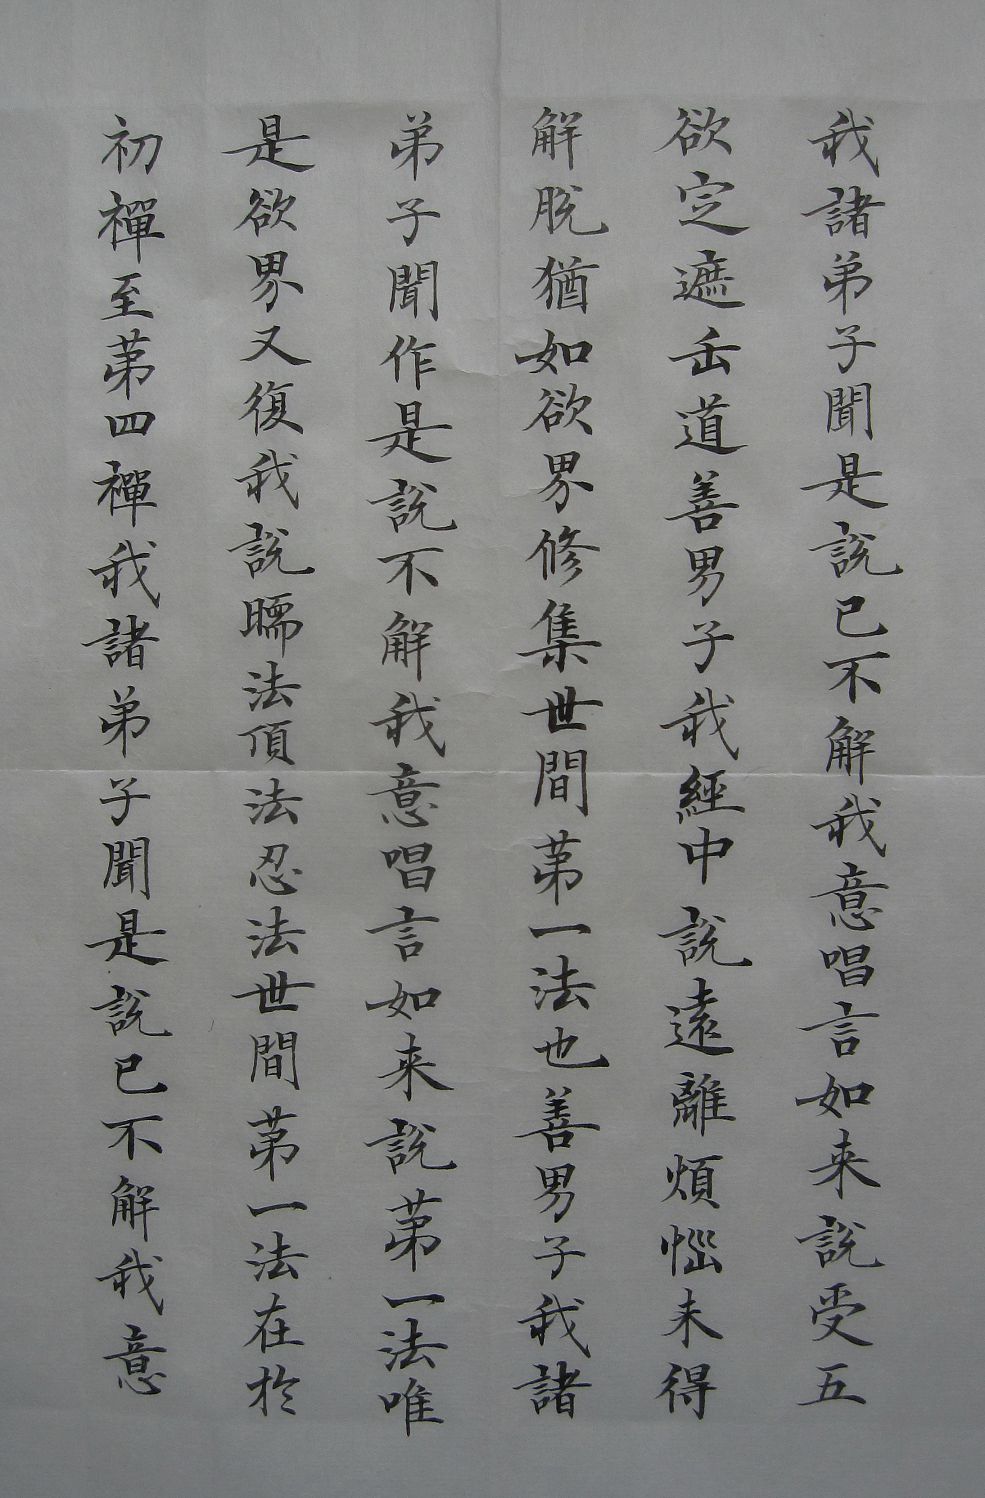 我諸弟子聞是說已不解我意唱言如来說受五
欲定遮正道善男子我經中說遠離煩惱未得
解脫猶如欲界修集世間苐一法也善男子我諸
弟子聞作是說不解我意唱言如来說苐一法唯
是欲界又復我說暊法頂法忍法世間苐一法在於
初禪至苐四禪我諸弟子聞是說已不解我意